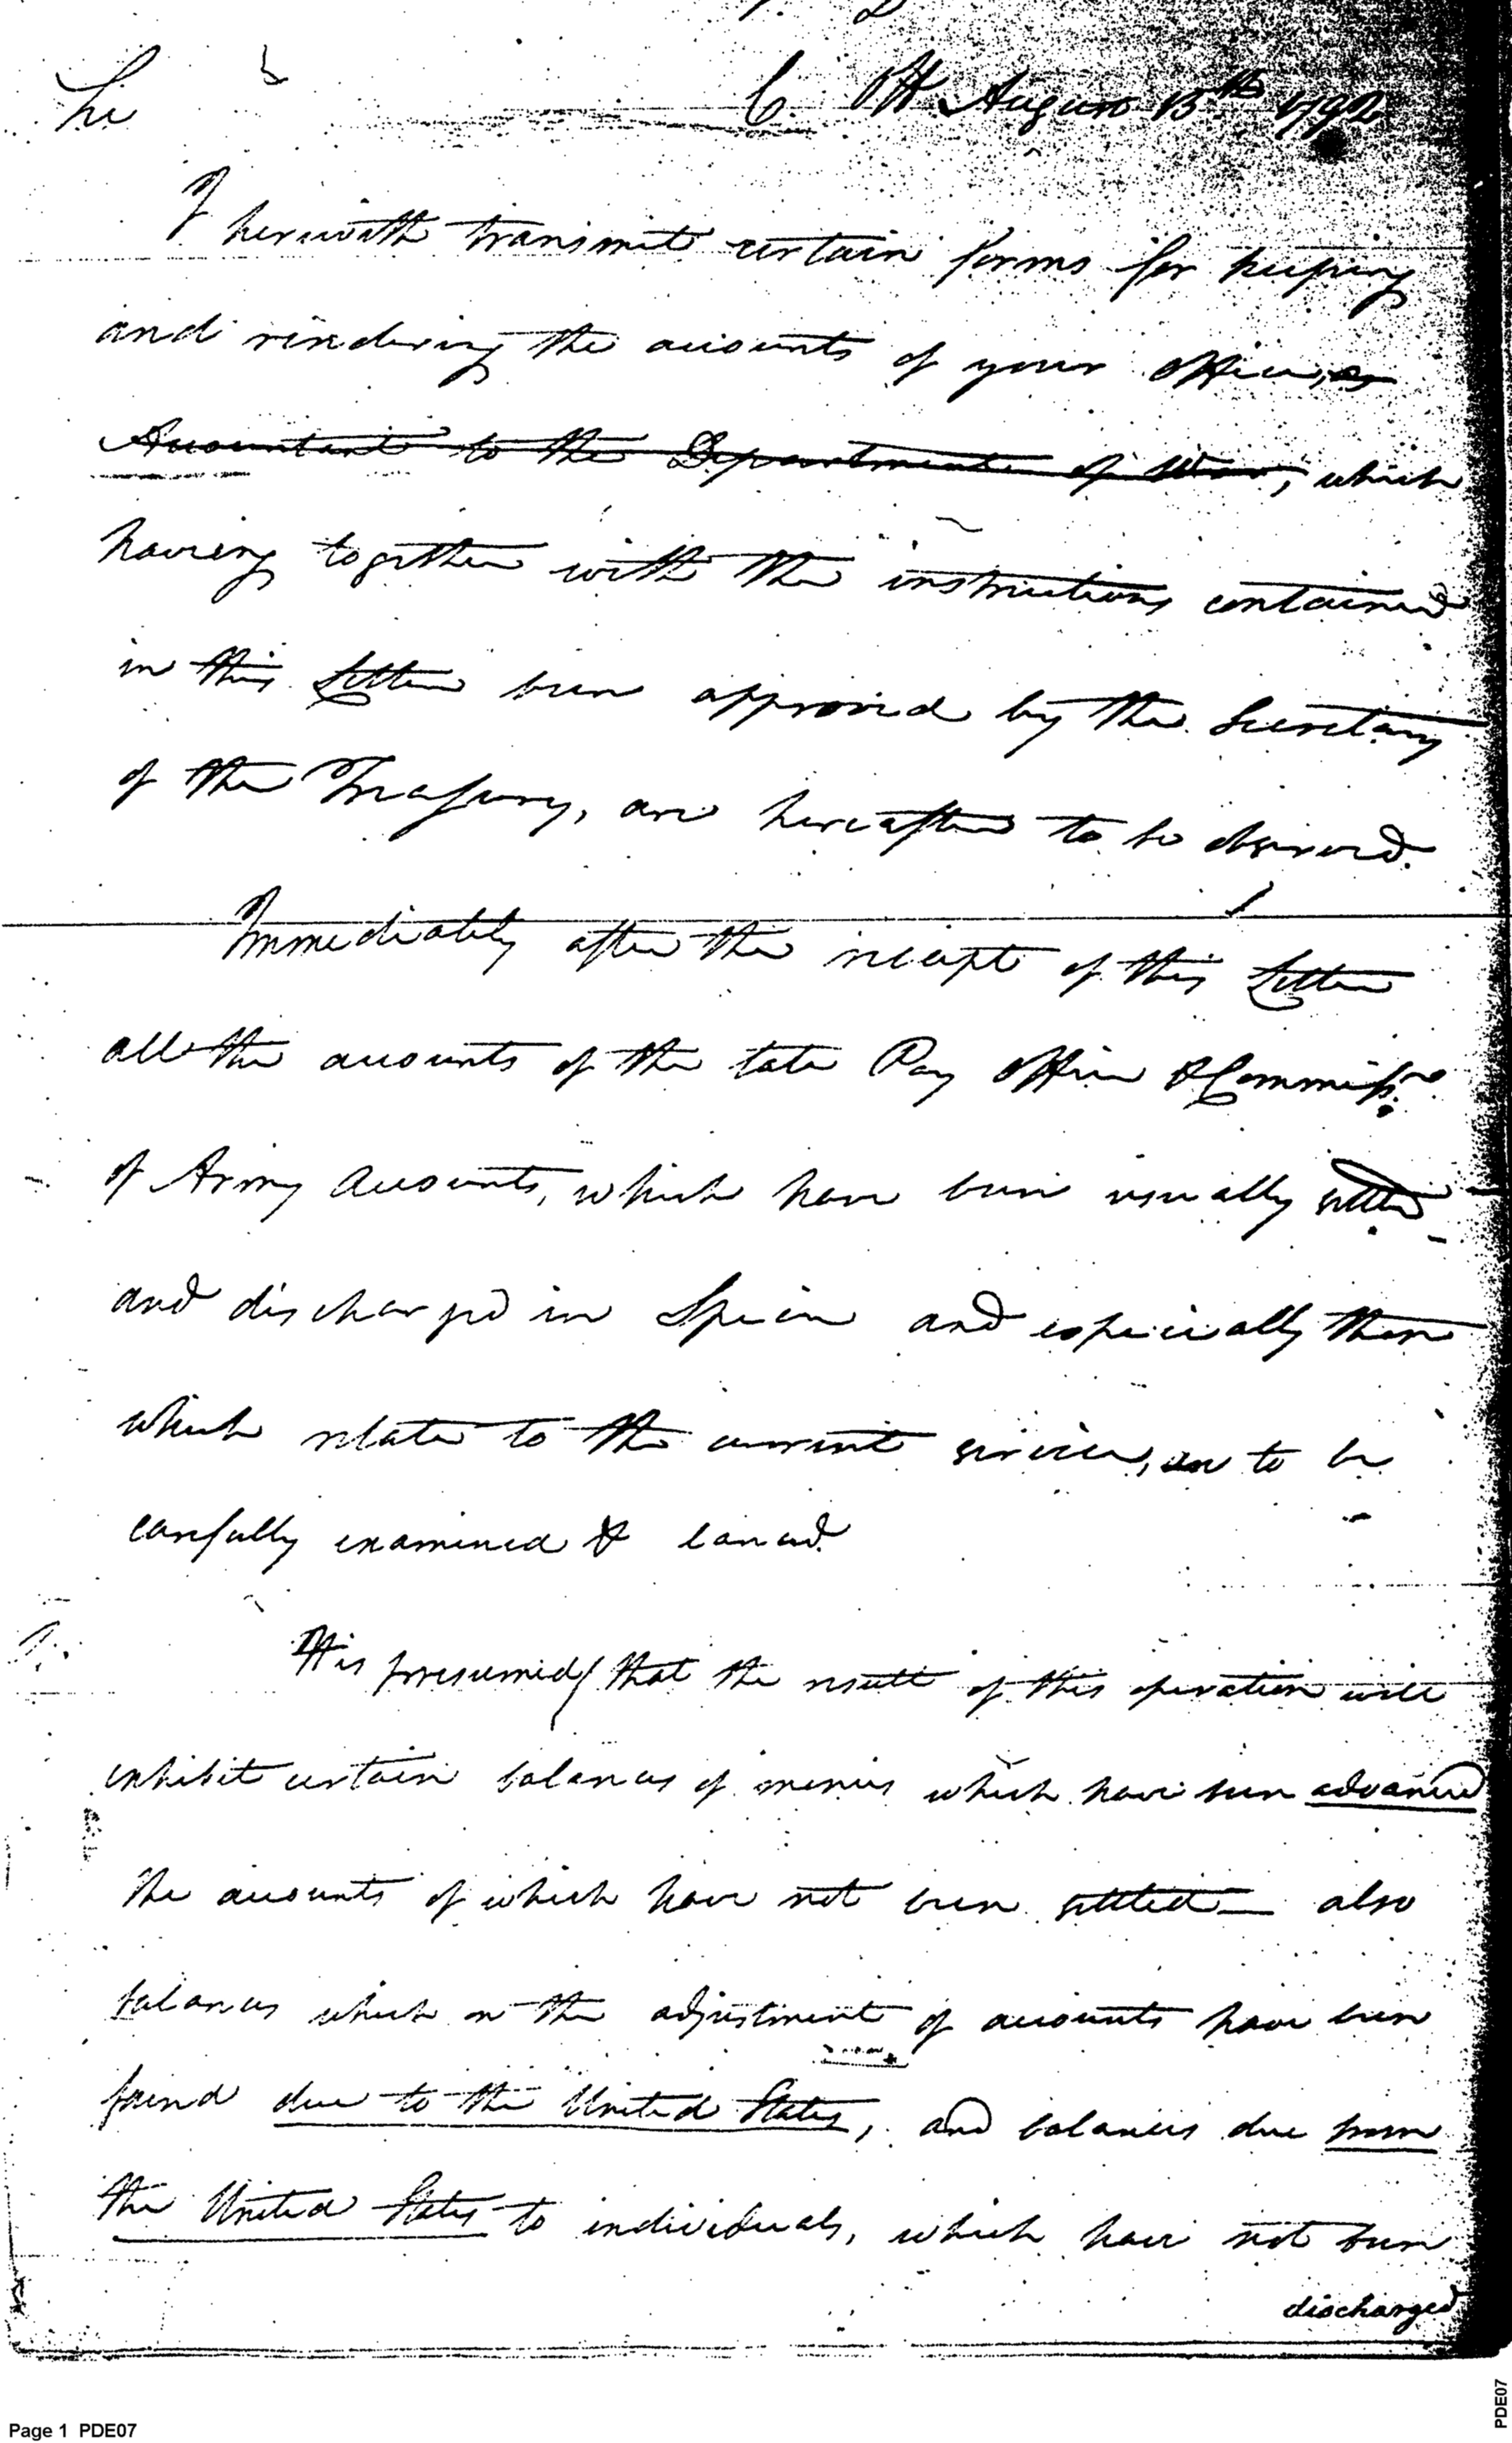 C. Off. August 13th 1792
I herewith transmit certain forms for keeping
and rendering the accounts of your office, as
Accountant to the Department of War, which
having together with the instructions contained
in this Letter been approved by the Secretary
of the Treasury, are hereafter to be observed.
Immediately after the receipt of this Letter
all the accounts of the late Pay Office & Commissre
of Army Accounts, which have been usually settled
and discharged in Specie and especially those
which relate to the current service, are to be
carefully examined &
It is presumed that the result of this operation will
exhibit certain balances of monies which have been advanced
the accounts of which have not been settled — also
balances which on the adjustment of accounts have been
found due to the United States, and balances due from
the United States to individuals, which have not been
discharged
Page 1 PDE07
PDE07